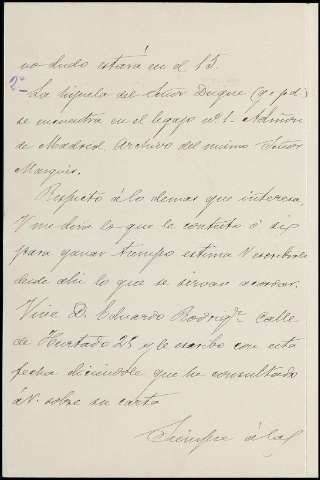 no dudo estará en el 15.
2º La hijuela del Señor Duque (q. p. d.)
se encuentra en el legajo nº 1- Admon
de Madrid. Archivo del mismo Señor
Marqués.
Respecto á lo demas que interesa,
V me dira lo que le contesto ó si
para ganar tiempo estima V escribirle
desde ahi lo que se sirvan acordar.
Vive D. Eduardo Rodrigz calle
de Hurtado 25 y le escribo con esta
fecha diciendole que he consultado
á V. sobre su carta
Siempre á las